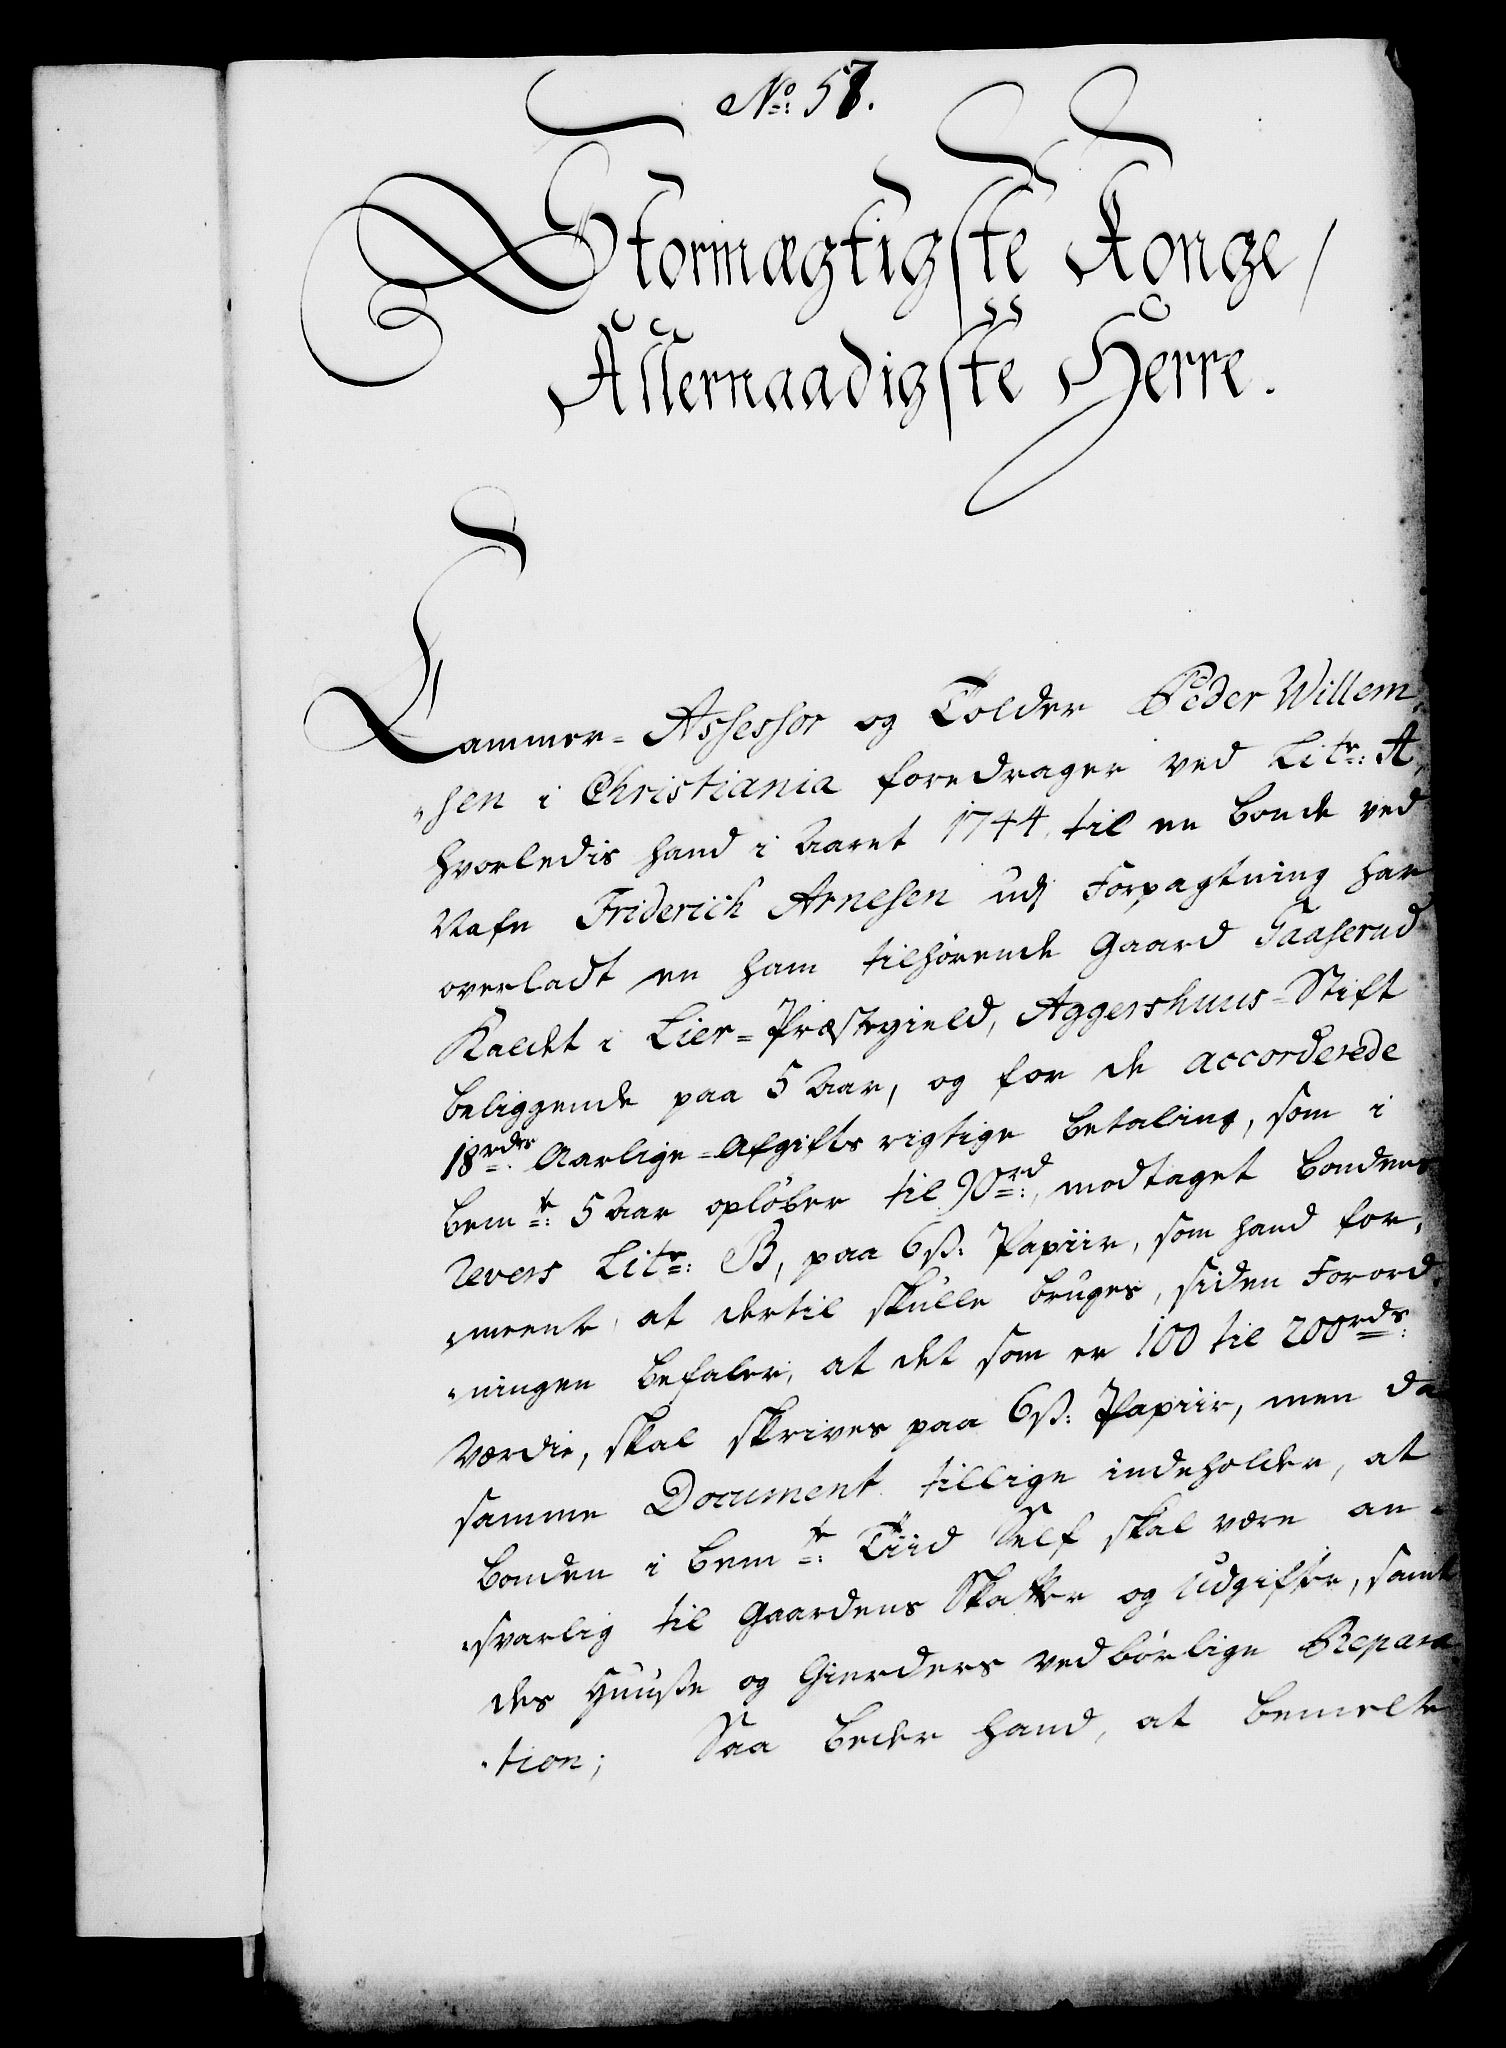 No: 57.
Stormægtigste Konge /
Allernaadigste Herre.
Cammer-Assessor og Tolder Peder Willem-
sen i Christiania foredrager ved Litr: A,
hvorledis hand i Aaret 1744 til en Bonde ved
Nafn Friderich Arnesen udj Forpagtning har
overladt en ham tilhørende Gaard Gaaserud
Kaldet i Lier-Præstegield, Aggershuus-Stift
beliggende paa 5 Aar, og for de accorderede
18 rdr Aarlige-Afgifts rigtige Betaling, som i
bemte: 5 Aar opløber til 90 rd:, modtaget Bondens
Revers Litr: B, paa 6 ß: Papiir, som hand for-
meente, at dertil skulle bruges, siden Forord-
ningen befaler, at det som er 100 til 200 rds:
Værdie, skal skrives paa 6 ß: Papiir, men da
samme Document tillige indeholder, at
Bonden i bemte: Tiid Self skal være an-
svarlig til Gaardens Skatter og Udgifter, samt
des Huuse og Gierders vedbørlige Repara
tion; Saa beder hand, at bemelte